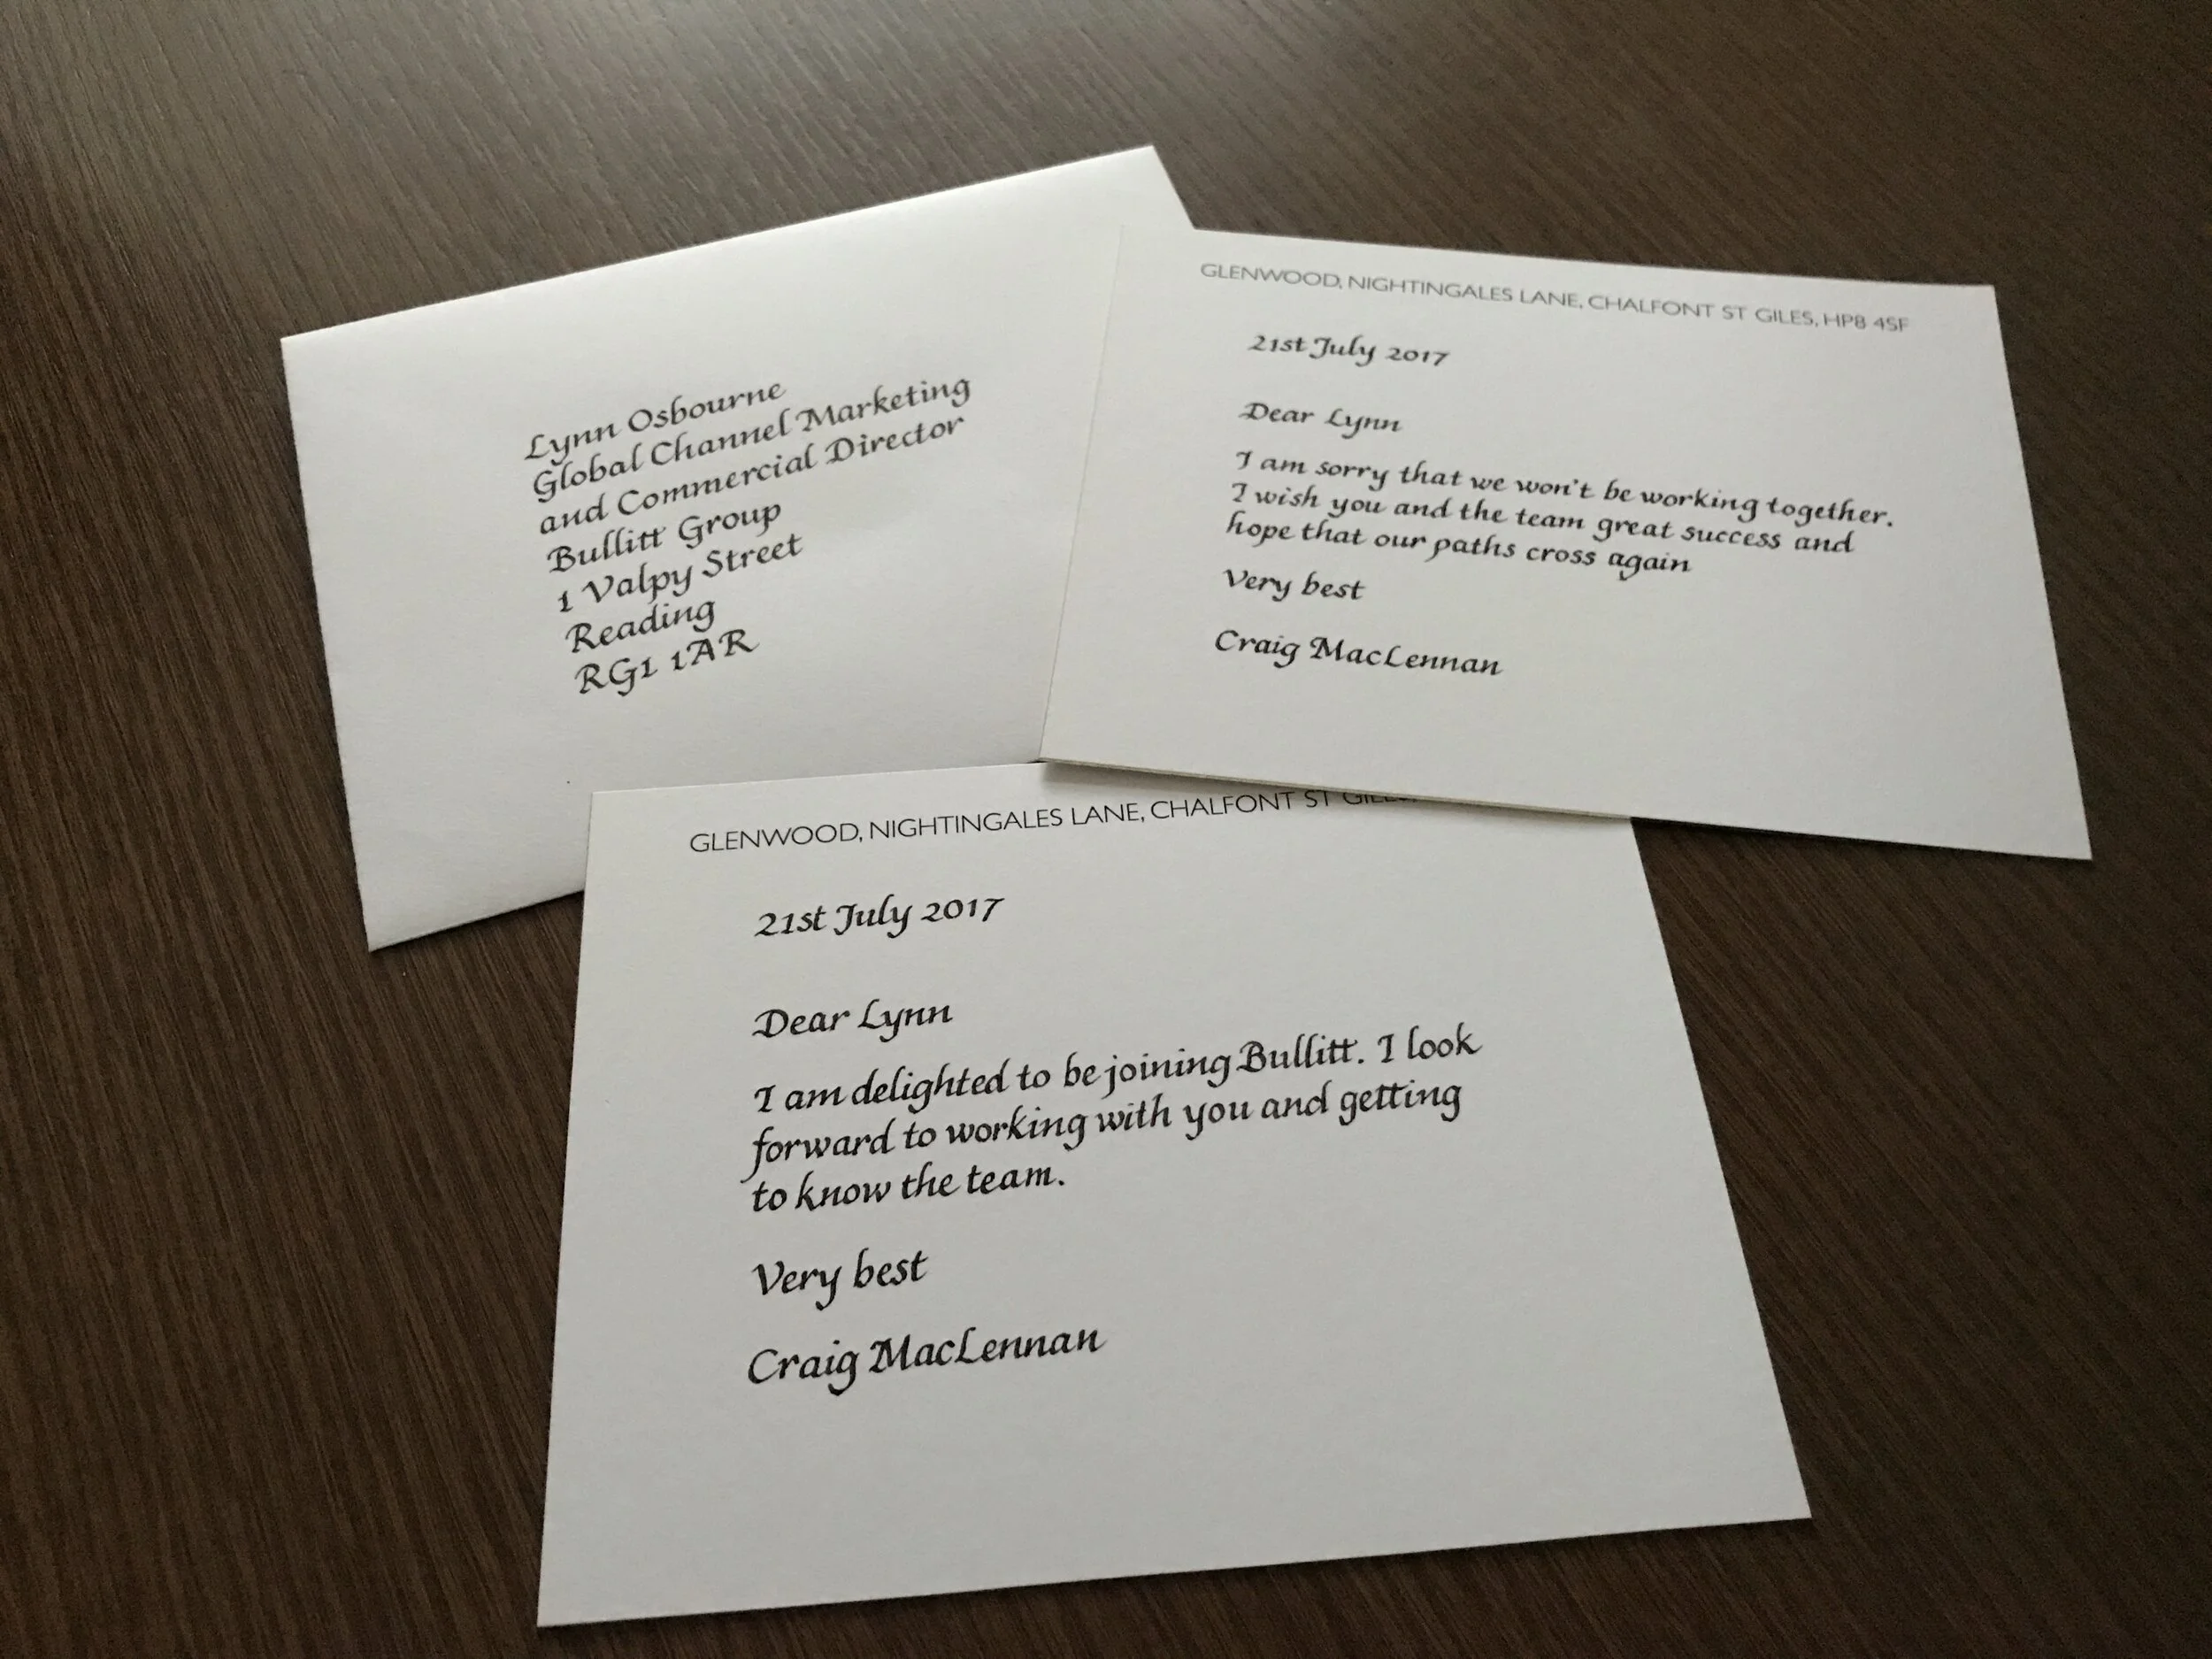 Lynn Osbourne
Global Channel Marketing
and Commercial Director
Bullitt Group
1 Valpy Street
Reading
RG1 1AR
GLENWOOD, NIGHTINGALES LANE, CHALFONT ST GILES, HP8 4SF
21st July 2017
Dear Lynn
I am sorry that we won't be working together.
I wish you and the team great success and
hope that our paths cross again
Very best
Craig MacLennan
GLENWOOD, NIGHTINGALES LANE, CHALFONT ST
21st July 2017
Dear Lynn
I am delighted to be joining Bullitt. I look
forward to working with you and getting
to know the team.
Very best
Craig MacLennan